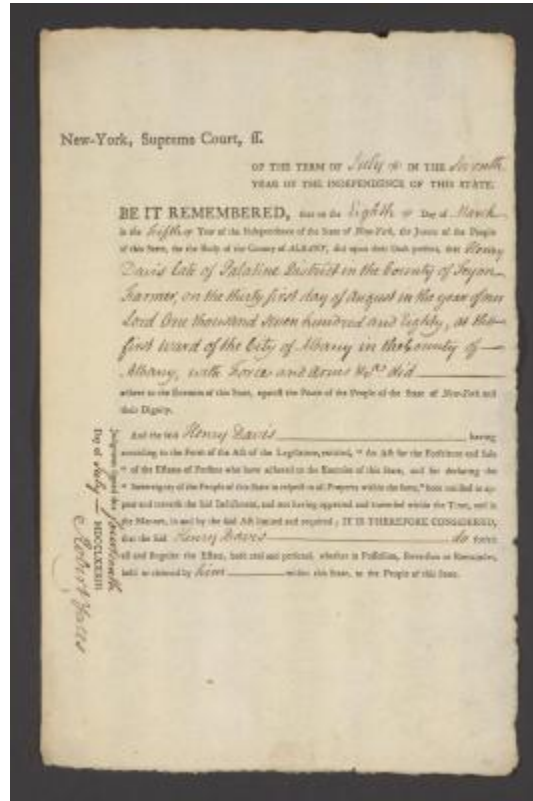 New-York, Supreme Court, ss.
OF THE TERM OF July IN THE Seventh
YEAR OF THE INDEPENDENCE OF THIS STATE.
BE IT REMEMBERED, that on the Eighth Day of March
in the fifth Year of the Independence of the State of New-York, the Jurors of the People
of this State, for the Body of the County of ALBANY, did upon their Oath present, that Henry
Davis late of Palatine District in the County of Tryon
Farmer, on the thirty first day of August in the year of our
Lord One thousand seven hundred and Eighty, at the
first ward of the City of Albany in the County of
Albany, with Force and Arms &ca. did
adhere to the Enemies of this State, against the Peace of the People of the State of New-York and
their Dignity.
And the said Henry Davis having
according to the Form of the Act of the Legislature, entitled, "An Act for the Forfeiture and Sale
" of the Estates of Persons who have adhered to the Enemies of this State, and for declaring the
" Sovereignty of the People of this State in respect to all Property within the same," been notified to ap-
pear and traverse the said Indictment, and not having appeared and traversed within the Time, and in
the Manner, in and by the said Act limited and required; IT IS THEREFORE CONSIDERED,
that the said Henry Davis do for-
feit all and singular the Estate, both real and personal, whether in Possession, Reversion or Remainder,
held or claimed by him within this State, to the People of this State.
Judgment signed this fourteenth
Day of July MDCCLXXXIII
Robert Yates